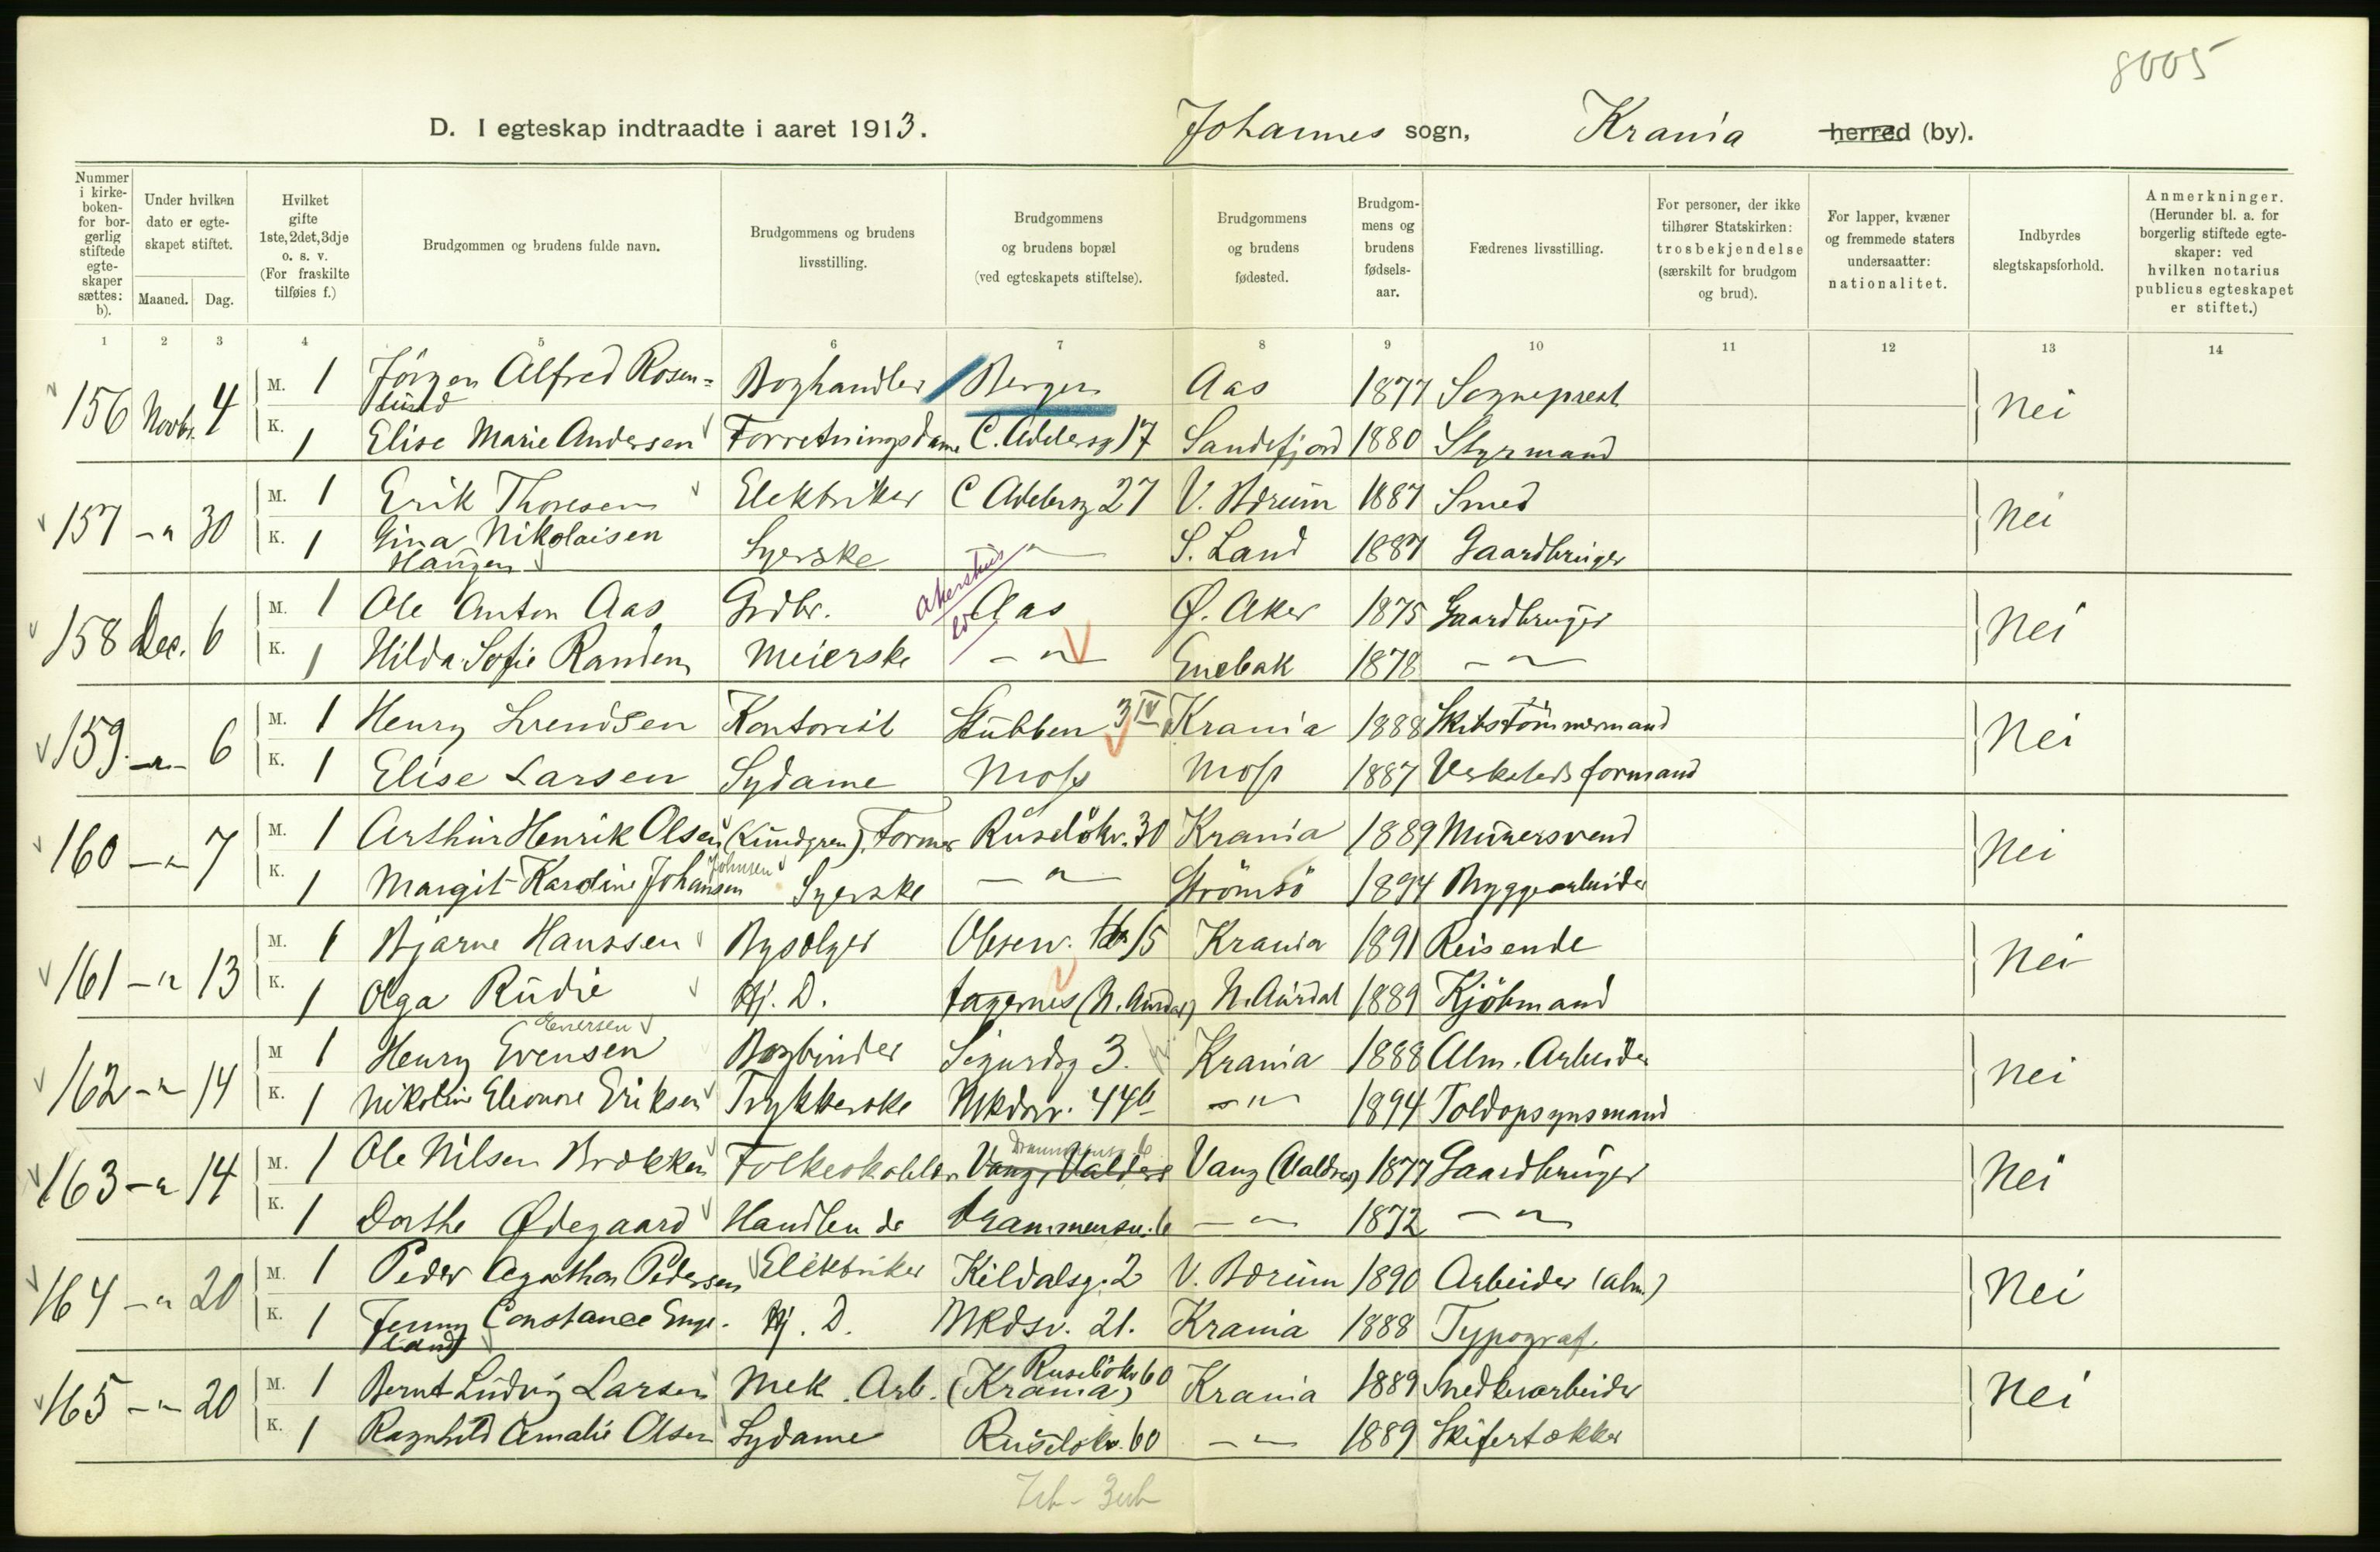 8005
D. I egteskap indtraadte i aaret 1913. Johannes sogn, Krania herred (by).
Nummer i kirke-boken- for bor-gerlig stiftede egte-skaper sættes: b).
Under hvilken dato er egte-skapet stiftet.
Maaned. Dag.
Hvilket gifte 1ste, 2det, 3dje o. s. v. (For fraskilte tilføies f.)
Brudgommen og brudens fulde navn.
Brudgommens og brudens livsstilling.
Brudgommens og brudens bopæl (ved egteskapets stiftelse).
Brudgommens og brudens fødested.
Brudgom-mens og brudens fødsels-aar.
Fædrenes livsstilling.
For personer, der ikke tilhører Statskirken: trosbekjendelse (særskilt for brudgom og brud).
For lapper, kvæner og fremmede staters undersaatter: nationalitet.
Indbyrdes slegtskapsforhold.
Anmerkninger. (Herunder bl. a. for borgerlig stiftede egte-skaper: ved hvilken notarius publicus egteskapet er stiftet.)
1 2 3 4 5 6 7 8 9 10 11 12 13 14
156 Novbr. 4 M. 1 Jörgen Alfred Rosen=lund Boghandler Bergen Aas 1877 Sogneprest Nei
K. 1 Elise Marie Andersen Forretningsdame C. Adelersg 17 Sandefjord 1880 Styrmand
157 -"- 30 M. 1 Erik Thoresen Elektriker C Adelersg 27 V. Bærum 1887 Smed Nei
K. 1 Gina Nikolaisen Haugen Syerske -"- S. Land 1887 Gaardbruger
Akershus
158 Dec. 6 M. 1 Ole Anton Aas Grdbr. Aas Ø. Aker 1875 Gaardbruger Nei
K. 1 Hilda Sofie Randem Meierske -"- Enebak 1878 -"-
159 -"- 6 M. 1 Henry Svendsen Kontorist Stubben 3 IV Krania 1888 Skibstömmermand Nei
K. 1 Elise Larsen Sydame Moss Moss 1887 Verkstedsformand
160 -"- 7 M. 1 Arthur Henrik Olsen (Lundgren) Former Ruselökv. 30 Krania 1889 Murersvend Nei
K. 1 Margit Karoline Johansen Johnsen Syerske -"- Strömsö 1894 Byggearbeider
161 -"- 13 M. 1 Bjarne Hanssen Bysælger Observ. 15 Krania 1891 Reisende Nei
K. 1 Olga Rudie Hj. D. Fagernes (N. Aurdal) N. Aurdal 1889 Kjöbmand
Enersen
162 -"- 14 M 1 Henry Evensen Bogbinder Sigurdsg 3. Krania 1888 Alm. Arbeider Nei
K. 1 Nikoline Eleonore Eriksen Trykkerske Mkdsv. 44b -"- 1894 Toldopsynsmand
163 -"- 14 M. 1 Ole Nilsen Brækken Folkeskolelær Vang, Valders Drammensv. 6 Vang (Valdres) 1877 Gaardbruger Nei
K. 1 Dorthe Ødegaard Handlende Drammensv. 6 -"- 1872 -"-
164 -"- 20 M. 1 Peder Agathon Pedersen Elektriker Kildalsg. 2 V. Bærum 1890 Arbeider (alm.) Nei
K. 1 Jenny Constance Enge-land Hj. D. Mkdsv. 21. Krania 1888 Typograf
165 -"- 20 M. 1 Bernt Ludvig Larsen Mek. Arb. (Krania) Ruselökv 60 Krania 1889 Snedkerarbeider Nei
K. 1 Ragnhild Amalie Olsen Sydame Ruselökv. 60 -"- 1889 Skifertækker